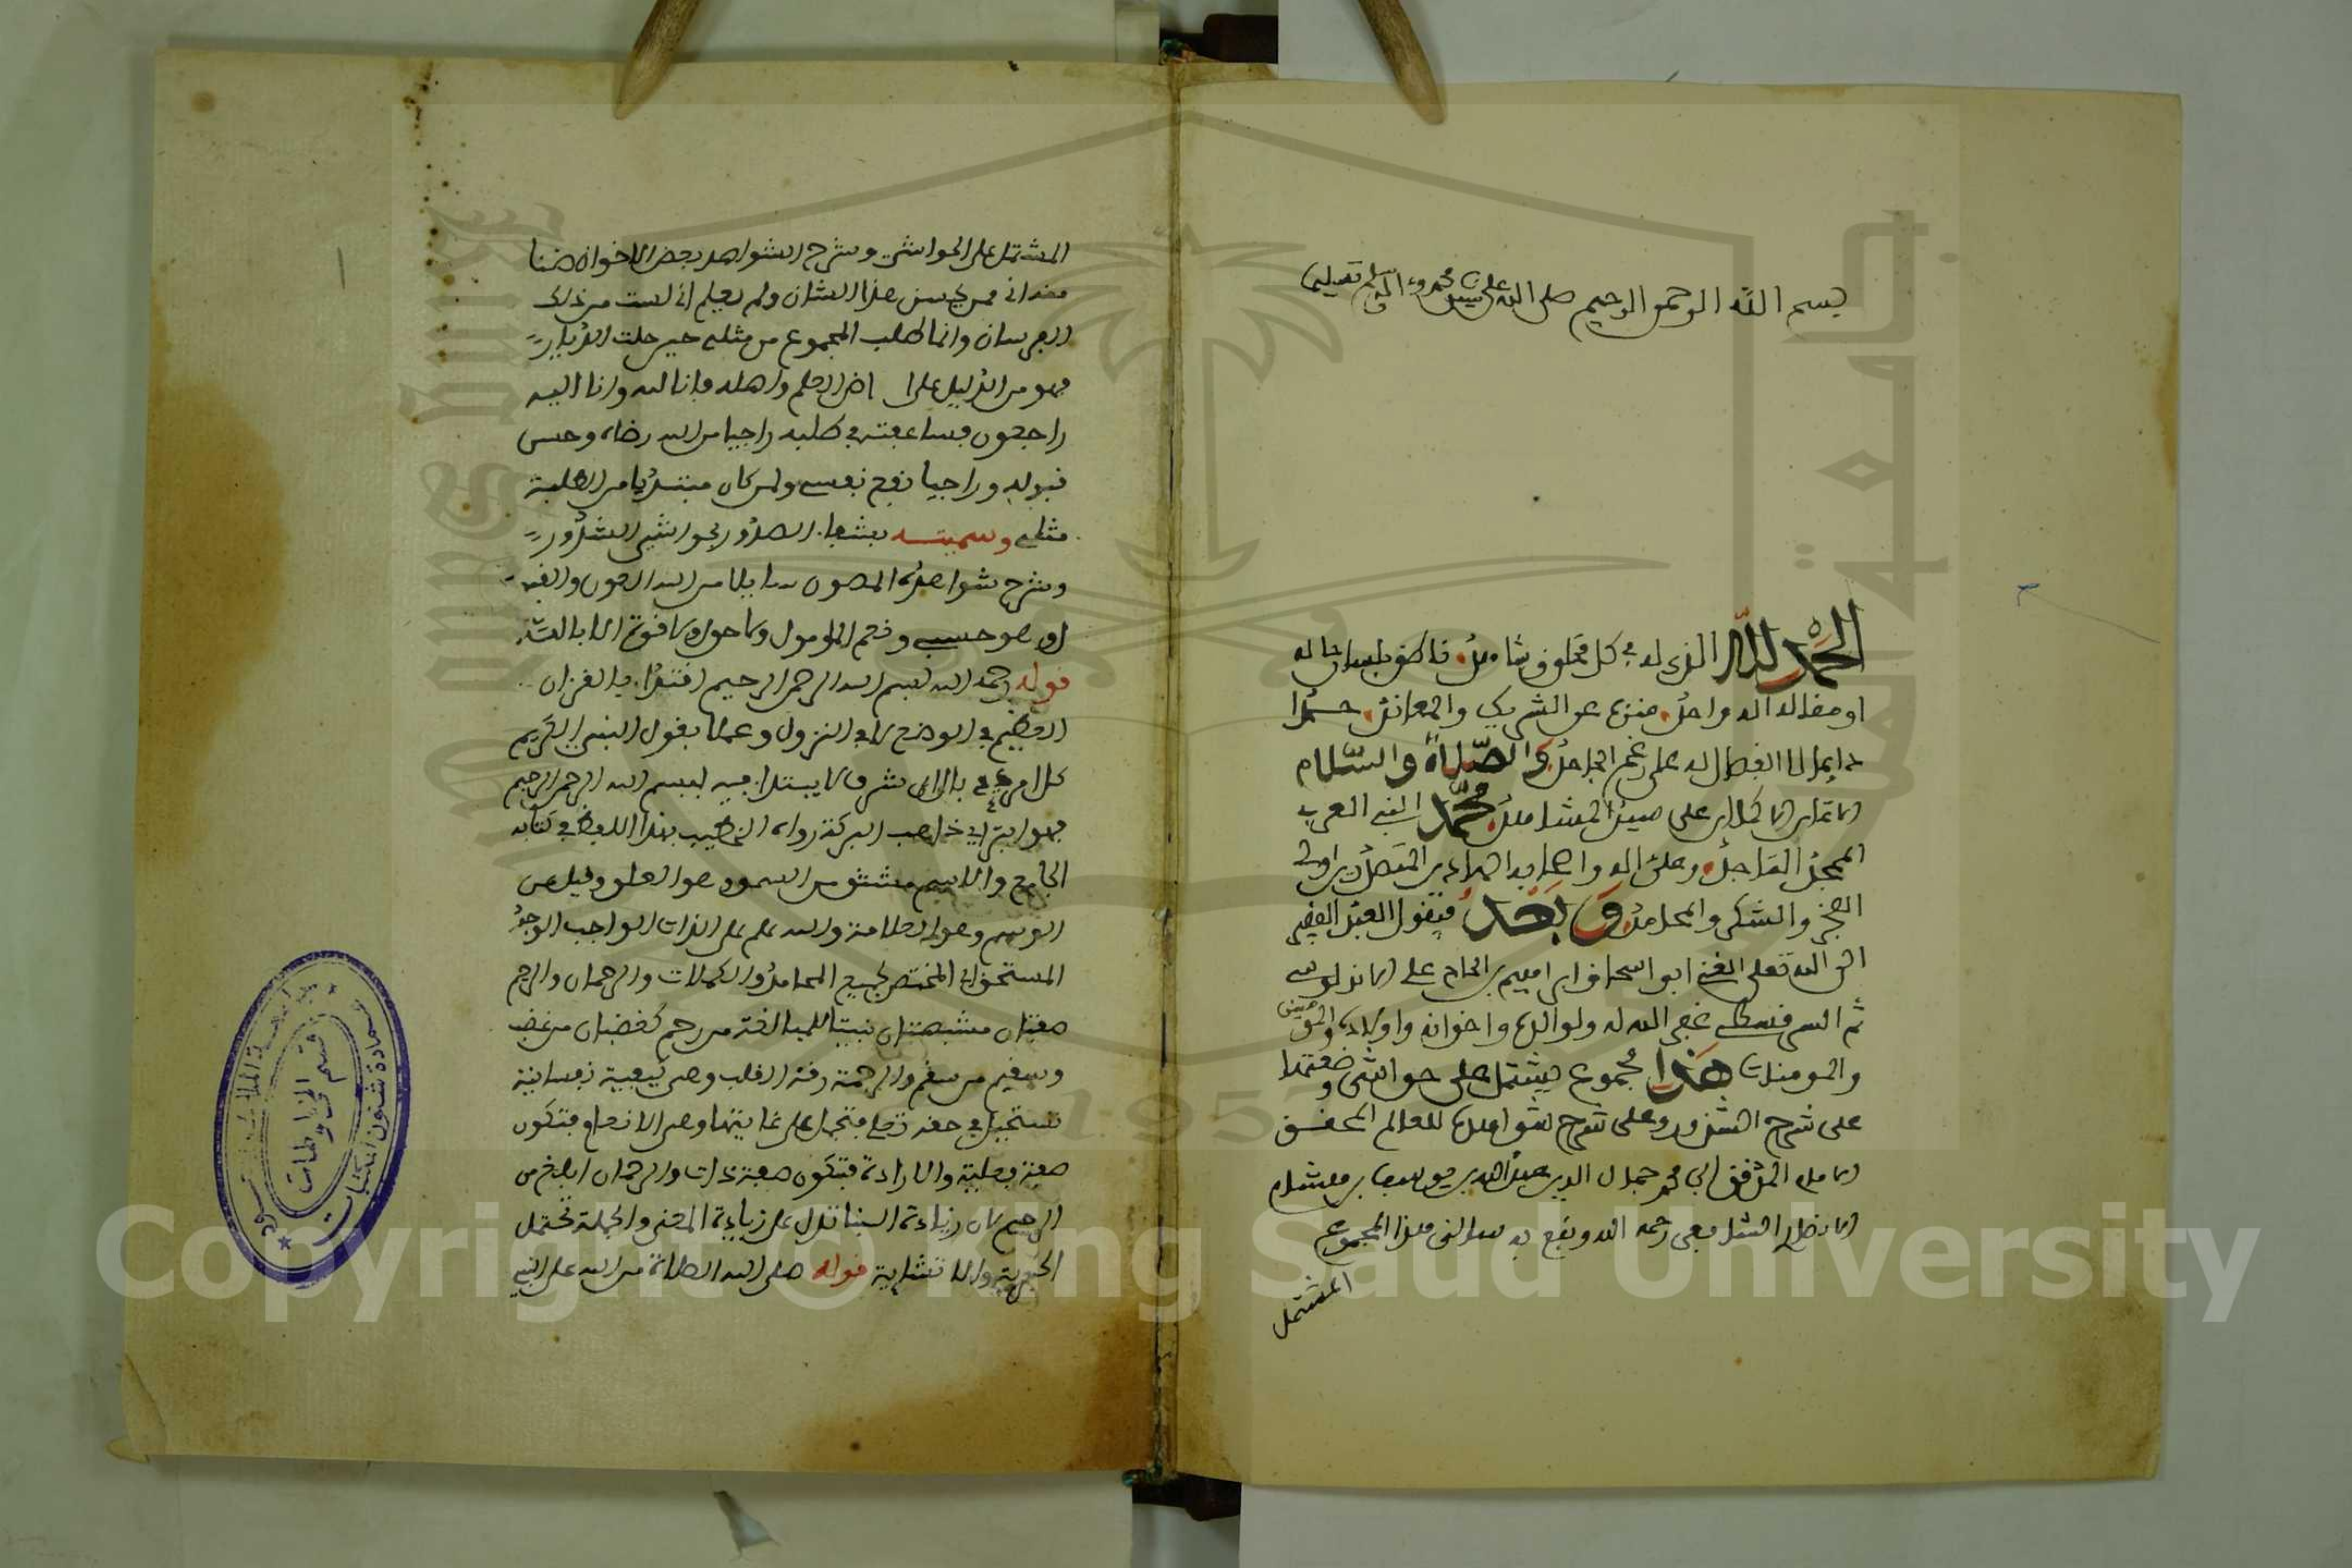 بسم الله الرحمن الرحيم صلى الله على سيدنا محمد وءاله وسلم تسليما
الحمد لله الذي له في كل مخلوق شاهد ناطق بلسان حاله
او مقاله انه واحد منزه عن الشريك والمعاند حمدا
دايما لا انفصال له على رغم الجاحد والصلاة والسلام
الاتمان الاكملان على سيد المشاهد محمد النبي العربي
الممجد الماجد وعلى اله واصحابه اولى
الفخر والشكر والمحامد وبعد فيقول العبد الفقير
الى الله تعلى الغني ابو اسحاق ابراهيم بن الحاج علي الاندلسي
ثم السرقسطي غفر الله له ولوالديه واخوانه واولاده والمومنين
والمومنات هذا مجموع يشتمل على حواشي وضعتها
على شرح الشذور وعلى شرح شواهده للعالم المحقق
الامام المدقق ابي محمد جمال الدين عبد الله بن يوسف بن هشام
الانصاري الشافعي رحمه الله ونفع به سالني هذا المجموع
المشتمل
المشتمل على الحواشي وشرح الشواهد بعض الاخوان ظنا
منه اني ممن يحسن هذا الشان ولم يعلم اني لست من ذلك
الفرسان وانما طلب المجموع من مثلي حين خلت الديار
فهو من الدليل على ا العلم واهله فانا لله وانا اليه
راجعون فساعفته في طلبه راجيا من الله رضاه وحسن
قبوله وراجيا نفع نفسي ولمن كان مبتديا من الطلبة
مثلي وسميته بشفاء الصدور بحواشي الشذور
وشرح شواهده المصون سايلا من الله العون
اذ هو حسبي ونعم المومول ولا حول ولا قوة الا بالله
قوله رحمه الله بسم الله الرحمن الرحيم اقتداء بالقرءان
العظيم في الوضع لا في النزول وعملا بقول النبي الكريم
كل امر ذي بال اي شرف لا يبتدا فيه ببسم الله الرحمن الرحيم
فهو ابتر اي ذاهب البركة رواه الخطيب بهذا اللفظ في كتابه
الجامع والاسم مشتق من السمو وهو العلو وقيل من
الوسم وهو العلامة والله علم على الذات الواجب الوجود
المستحق اي المختص لجميع المحامد والكملات والرحمان والرحيم
صفتان مشبهتان بنيتا للمبالغة من رحم كغضبان من غضب
وسقيم من سقم والرحمة رقة القلب وهي كيفية نفسانية
تستحيل في حقه تعلى فتحمل على غايتها وهي الانعام فتكون
صفة فعلية والارادة فتكون صفة ذات والرحمان ابلغ من
الرحيم لان زيادة البنا تدل على زيادة المعنى والجملة تحتمل
الخبرية والانشايية قوله صلى الله الصلاة من الله على النبي
عمادة شئون المكتبات
قسم المخطوطات
جامعة الملك سعود
1957
Copyright © King Saud University